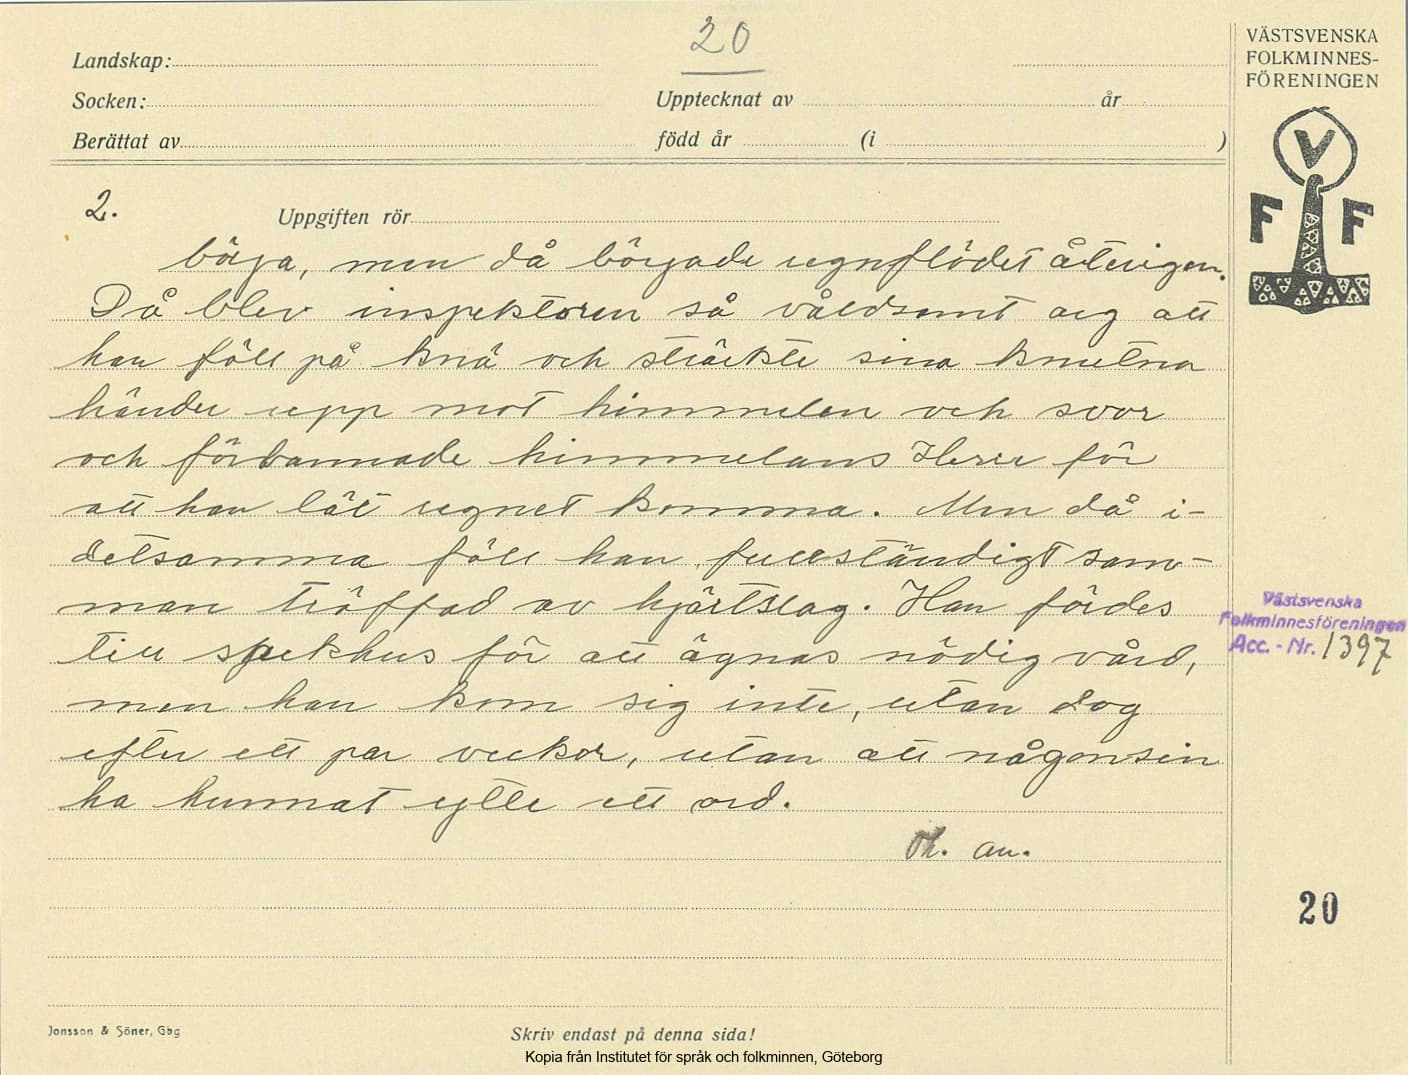 20
Landskap:
Socken:
Upptecknat av
år
Berättat av
född år
(i
)
VÄSTSVENSKA
FOLKMINNES-
FÖRENINGEN
V
F F
2.
Uppgiften rör
börja, men då började regnflödet återigen.
Då blev inspektoren så våldsamt arg att
han föll på knä och sträckte sina knutna
händer upp mot himmelen och svor
och förbannade himmelens Herre för
att han lät regnet komma. Men då i-
detsamma föll han fullständigt sam-
man träffad av hjärtslag. Han fördes
till sjukhus för att ägnas nödig vård,
men han kom sig inte, utan dog
efter ett par veckor, utan att någonsin
ha hunnat yttre ett ord.
Th. an.
Västsvenska
Folkminnesföreningen
Acc. - Nr. 1397
20
Jonsson & Söner, Gbg
Skriv endast på denna sida!
Kopia från Institutet för språk och folkminnen, Göteborg